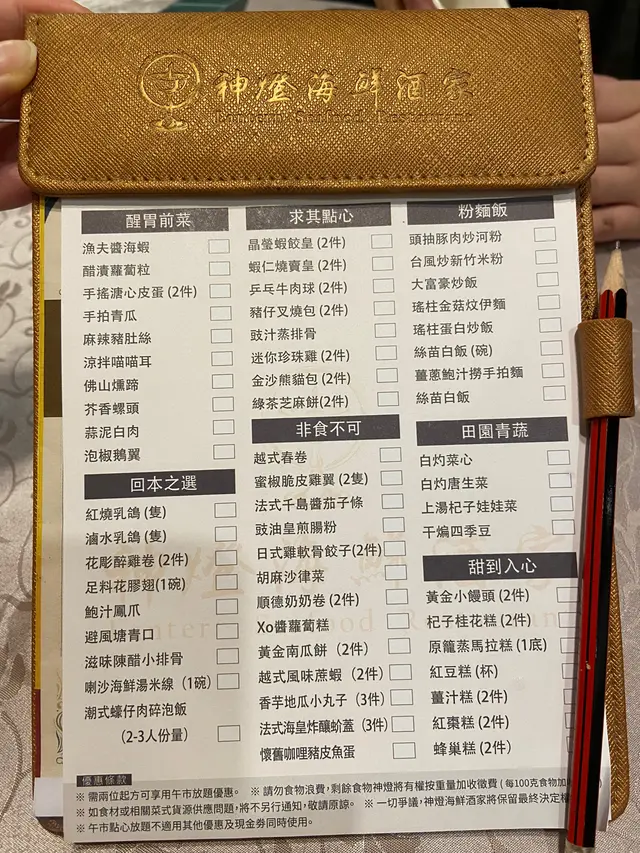 神燈海鮮酒家
Lantern Seafood Restaurant
醒胃前菜
漁夫醬海蝦
醋漬蘿蔔粒
手搖溏心皮蛋 (2件)
手拍青瓜
麻辣豬肚絲
涼拌喵喵耳
佛山燻蹄
芥香螺頭
蒜泥白肉
泡椒鵝翼
回本之選
紅燒乳鴿 (隻)
滷水乳鴿 (隻)
花彫醉雞卷 (2件)
足料花膠翅(1碗)
鮑汁鳳爪
避風塘青口
滋味陳醋小排骨
喇沙海鮮湯米線 (1碗)
潮式蠔仔肉碎泡飯
(2-3人份量)
求其點心
晶瑩蝦餃皇 (2件)
蝦仁燒賣皇 (2件)
乒乓牛肉球 (2件)
豬仔叉燒包 (2件)
豉汁蒸排骨
迷你珍珠雞 (2件)
金沙熊貓包 (2件)
綠茶芝麻餅(2件)
非食不可
越式春卷
蜜椒脆皮雞翼 (2隻)
法式千島醬茄子條
豉油皇煎腸粉
日式雞軟骨餃子(2件)
胡麻沙律菜
順德奶奶卷 (2件)
Xo醬蘿蔔糕
黃金南瓜餅 (2件)
越式風味蔗蝦 (2件)
香芋地瓜小丸子 (3件)
法式海皇炸釀蚧蓋 (3件)
懷舊咖哩豬皮魚蛋
粉麵飯
頭抽豚肉炒河粉
台風炒新竹米粉
大富豪炒飯
瑤柱金菇炆伊麵
瑤柱蛋白炒飯
絲苗白飯 (碗)
薑蔥鮑汁撈手拍麵
絲苗白飯
田園青蔬
白灼菜心
白灼唐生菜
上湯杞子娃娃菜
干煸四季豆
甜到入心
黃金小饅頭 (2件)
杞子桂花糕 (2件)
原籠蒸馬拉糕 (1底)
紅豆糕 (杯)
薑汁糕 (2件)
紅棗糕 (2件)
蜂巢糕 (2件)
優惠條款
※ 需兩位起方可享用午市放題優惠。 ※ 請勿食物浪費, 剩餘食物神燈將有權按重量加收徵費 ( 每100克食物加
※ 如食材或相關菜式貨源供應問題, 將不另行通知, 敬請原諒。 ※ 一切爭議, 神燈海鮮酒家將保留最終決定
※ 午市點心放題不適用其他優惠及現金劵同時使用。